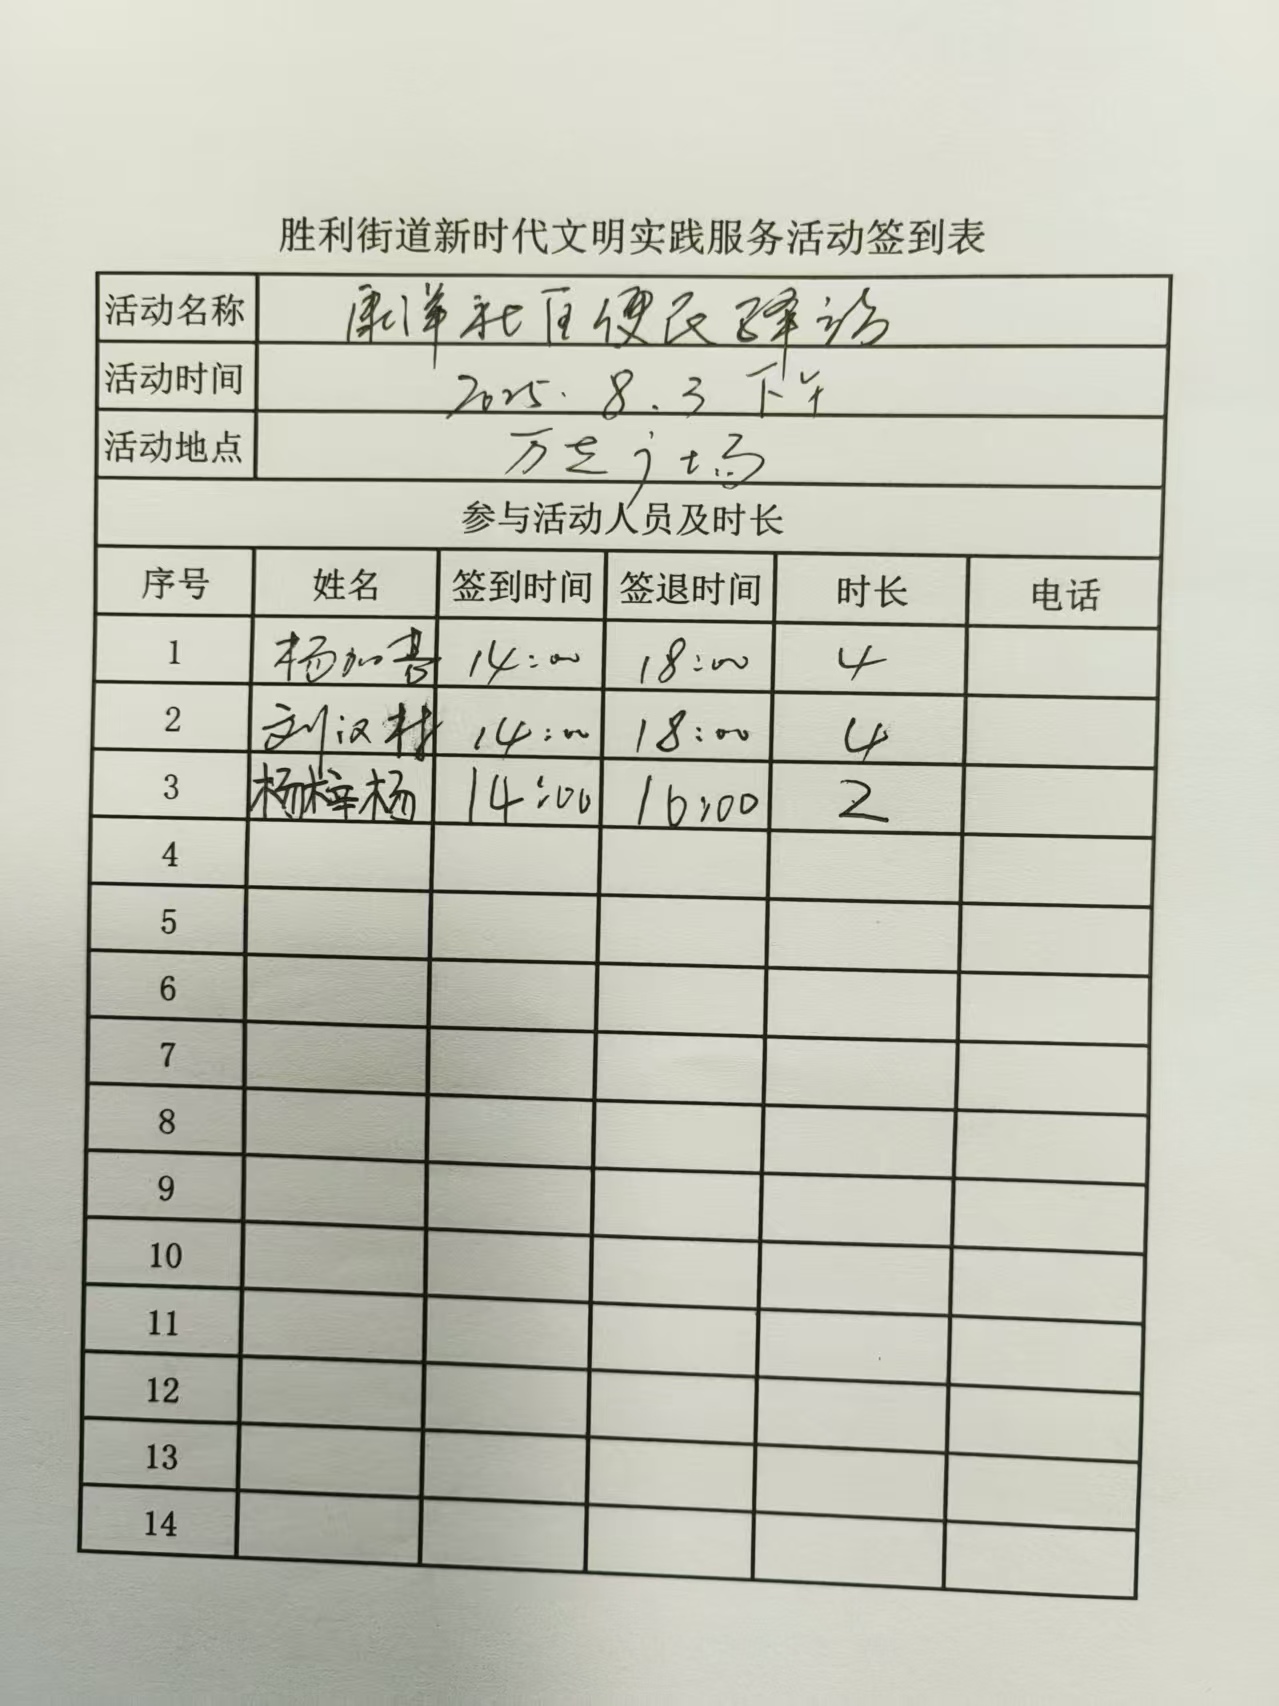 胜利街道新时代文明实践服务活动签到表
活动名称 康洋社区便民驿站
活动时间 2025.8.3 下午
活动地点 万达广场
参与活动人员及时长
序号 姓名 签到时间 签退时间 时长 电话
1 杨加喜 14:00 18:00 4
2 刘汉林 14:00 18:00 4
3 杨梓杨 14:00 16:00 2
4
5
6
7
8
9
10
11
12
13
14